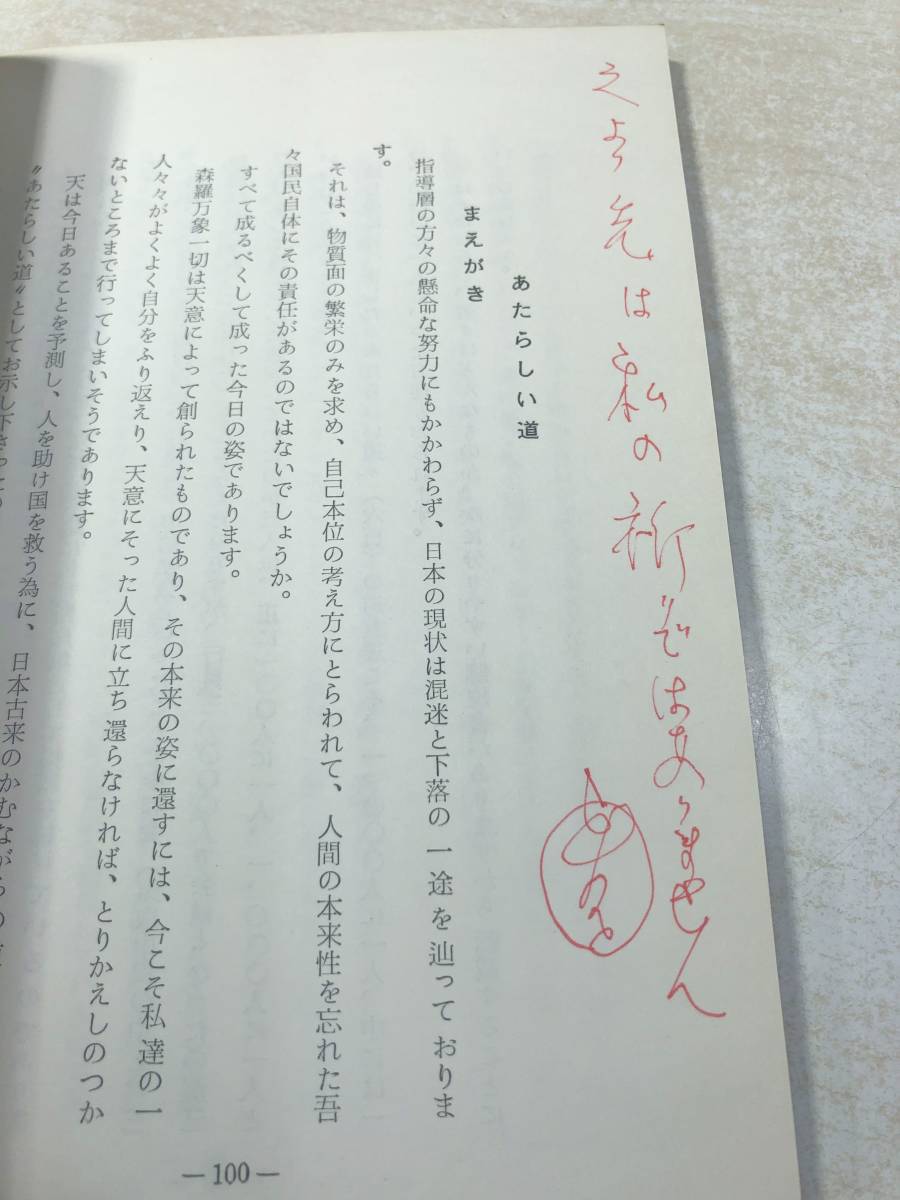 之より先は私の祈りではありません
あたらしい道
まえがき
指導層の方々の懸命な努力にもかかわらず、日本の現状は混迷と下落の一途を辿っておりま
す。
それは、物質面の繁栄のみを求め、自己本位の考え方にとらわれて、人間の本来性を忘れた吾
々国民自体にその責任があるのではないでしょうか。
すべて成るべくして成った今日の姿であります。
森羅万象一切は天意によって創られたものであり、その本来の姿に還すには、今こそ私達の一
人々々がよくよく自分をふり返えり、天意にそった人間に立ち還らなければ、とりかえしのつか
ないところまで行ってしまいそうであります。
天は今日あることを予測し、人を助け国を救う為に、日本古来のかむながらの
〝あたらしい道〟としてお示し下さっ
— 100 —